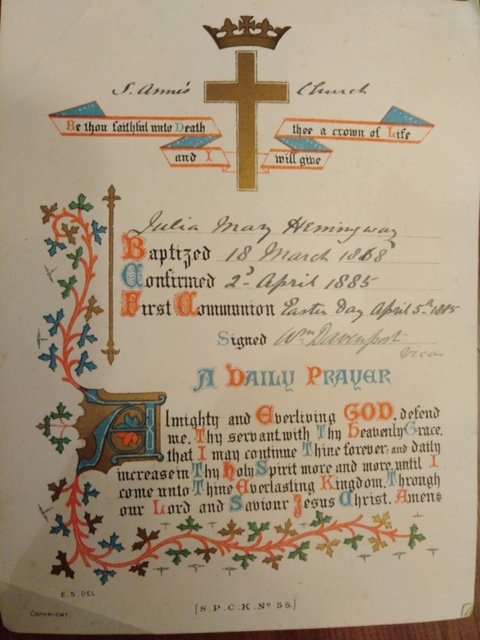 S. Anne's Church
Be thou faithful unto Death
thee a crown of Life
and I will give
Julia Mary Hemingway
Baptized 18 March 1868
Confirmed 2d April 1885
First Communion Easter Day April 5th 1885
Signed Wm Davenport
Vicar
A DAILY PRAYER
Almighty and Everliving GOD, defend
me, Thy servant, with Thy Heavenly Grace,
that I may continue Thine forever; and daily
increase in Thy Holy Spirit more and more, until I
come unto Thine Everlasting Kingdom, Through
our Lord and Saviour Jesus Christ. Amen
E.S DEL
COPYRIGHT.
[S.P.C.K. No 55.]